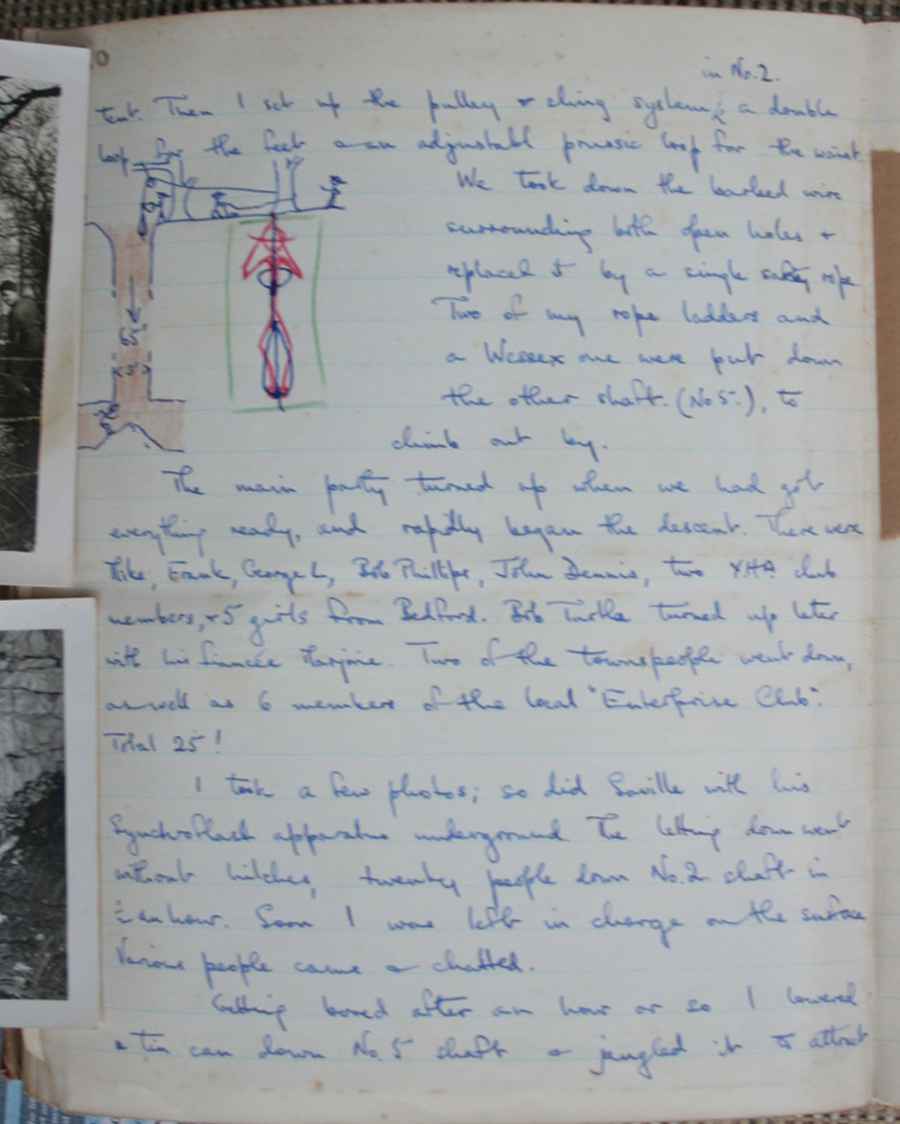 0
in No.2.
tent. Then I set up the pulley & sling system, a double
loop for the feet & an adjustable prussic loop for the waist.
We took down the barbed wire
surrounding both open holes &
replaced it by a single safety rope
Two of my rope ladders and
a Wessex one were put down
the other shaft. (No 5.), to
climb out by.
65'
3'
The main party turned up when we had got
everything ready, and rapidly began the descent. There were
Mike, Frank, George L, Bob Phillips, John Dennis, two YHA club
members, & 5 girls from Bedford. Bob Turtle turned up later
with his fiancée Marjorie. Two of the townspeople went down,
as well as 6 members of the local "Enterprise Club".
Total 25!
I took a few photos; so did Saville with his
Synchroflash apparatus underground. The letting down went
without hitches, twenty people down No.2 shaft in
½ an hour. Soon I was left in charge on the surface
Various people came & chatted.
Getting bored after an hour or so I lowered
a tin can down No. 5 shaft & jangled it to attract